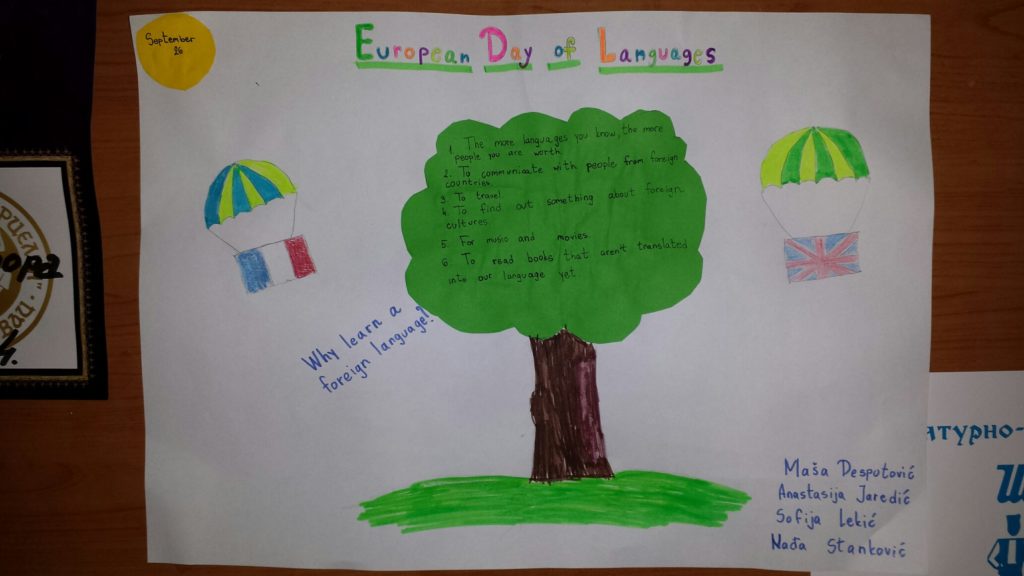 September
26
European Day of Languages
1. The more languages you know, the more
people you are worth.
2. To communicate with people from foreign
countries.
3. To travel
4. To find out something about foreign
cultures.
5. For music and movies
6. To read books that aren't translated
into our language yet
Why learn a
foreign language?
Maša Despotović
Anastasija Jaredić
Sofija Lekić
Nađa Stanković
АТУРНО-